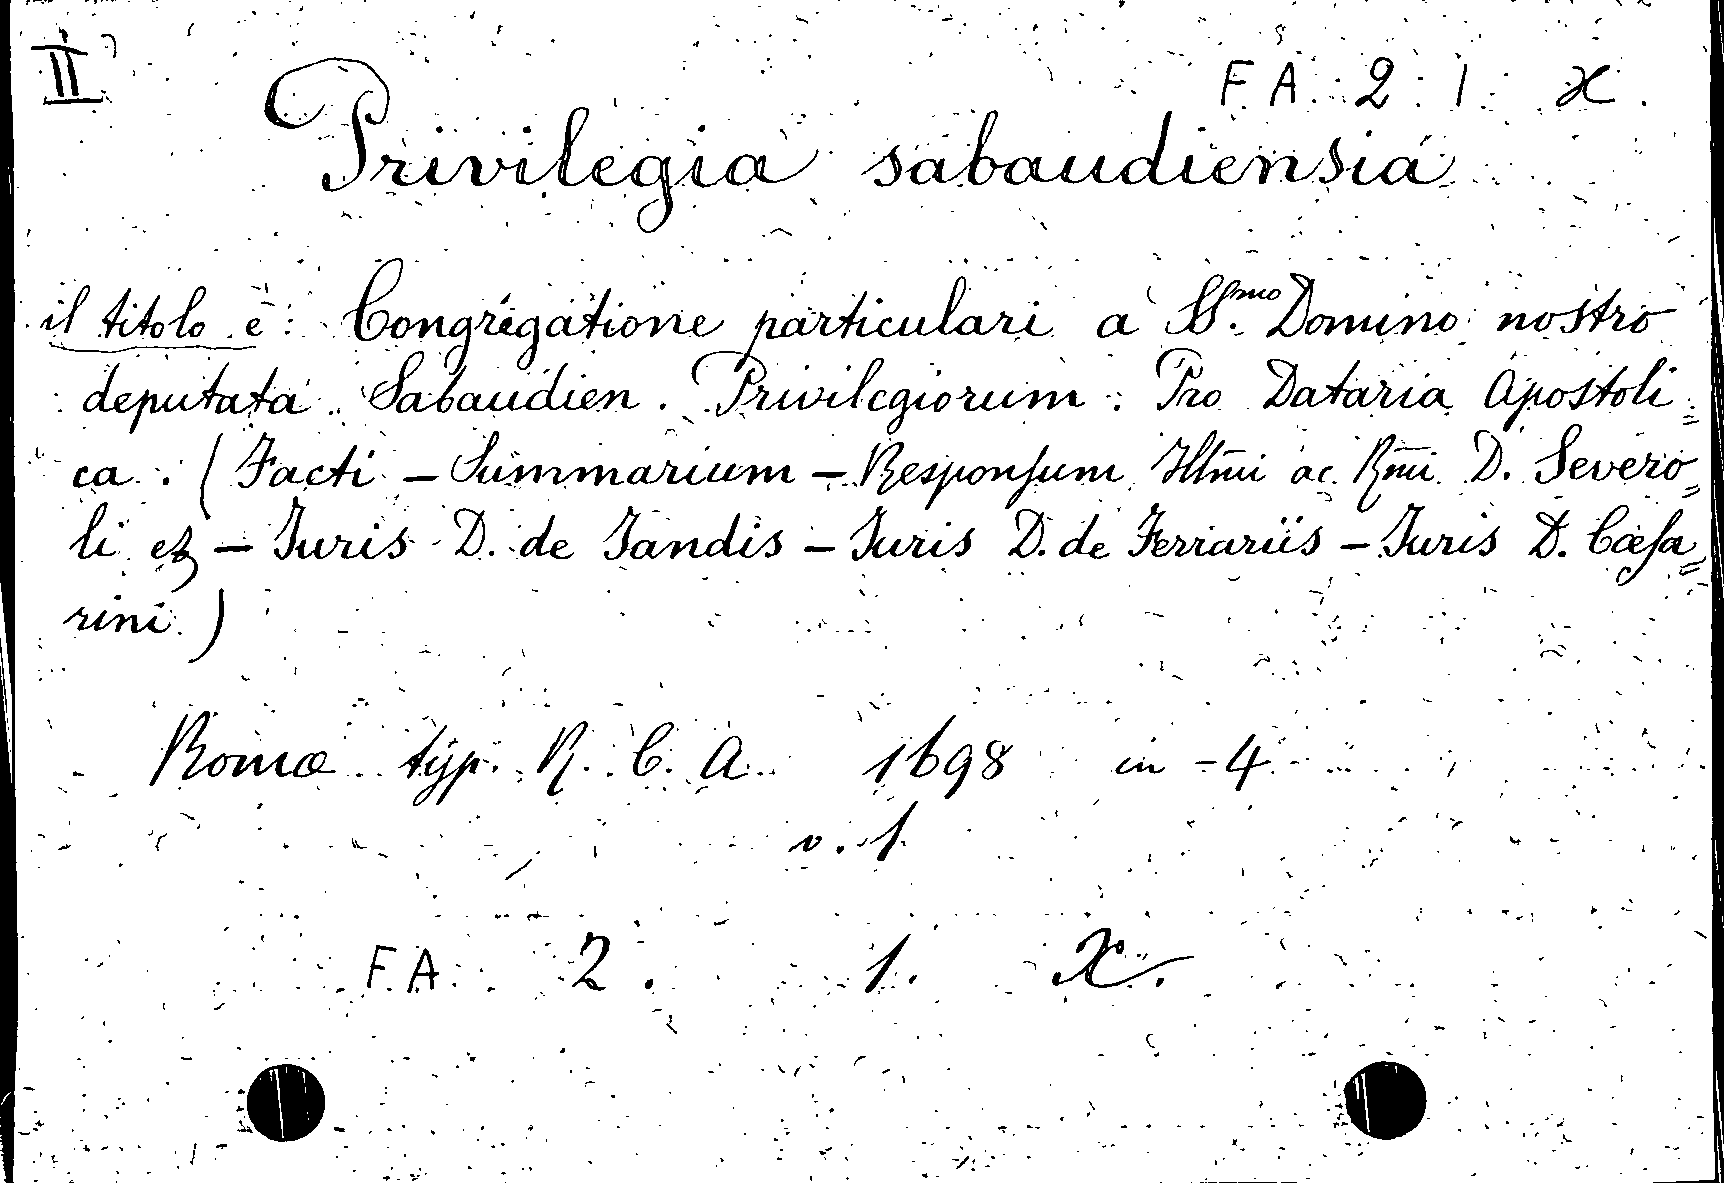 II
F. A. 2. 1. X.
Privilegia sabaudiensia
il titolo è: Congregatione particulari a SS.mo Domino nostro
deputata Sabaudien. Privilegiorum. Pro Dataria Apostoli=
ca. (Facti - Summarium - Responsum Illm̃i ac Rm̃i D. Severo=
li et - Juris D. de Jandis - Juris D. de Ferrariis - Juris D. Cæsa=
rini.)
Romæ typ. R. C. A. 1698 in-4
v. 1.
F. A. 2. 1. X.